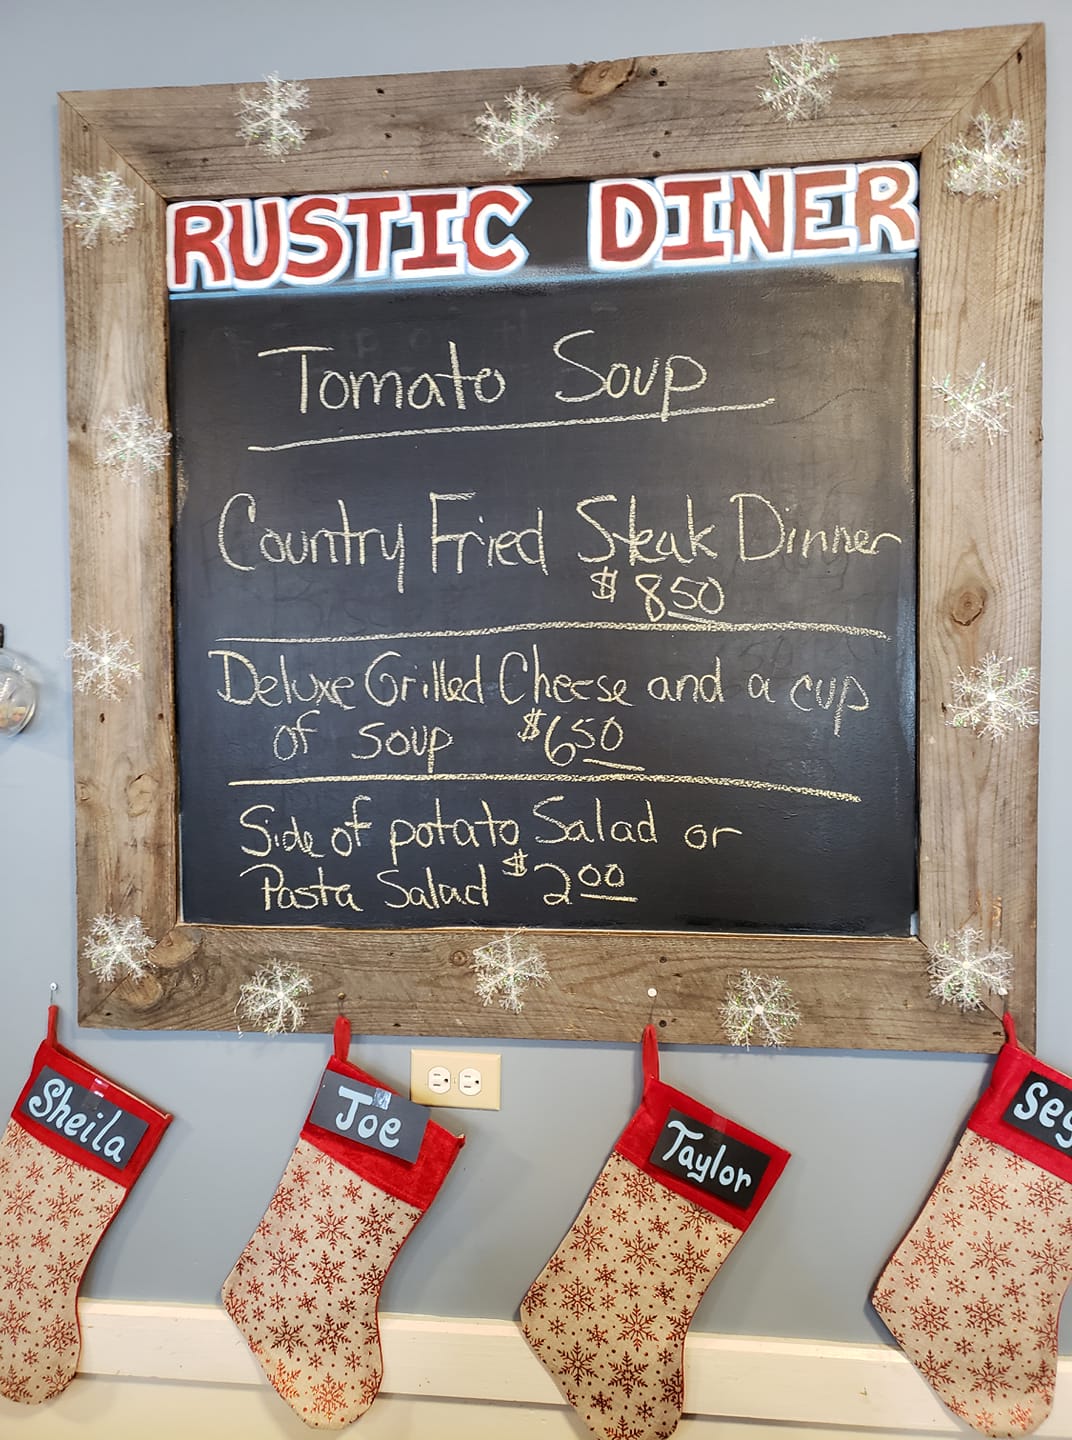 RUSTIC DINER
Tomato Soup
Country Fried Steak Dinner
$850
Deluxe Grilled Cheese and a cup
of soup $650
Side of potato Salad or
Pasta Salad $200
Sheila
Joe
Taylor